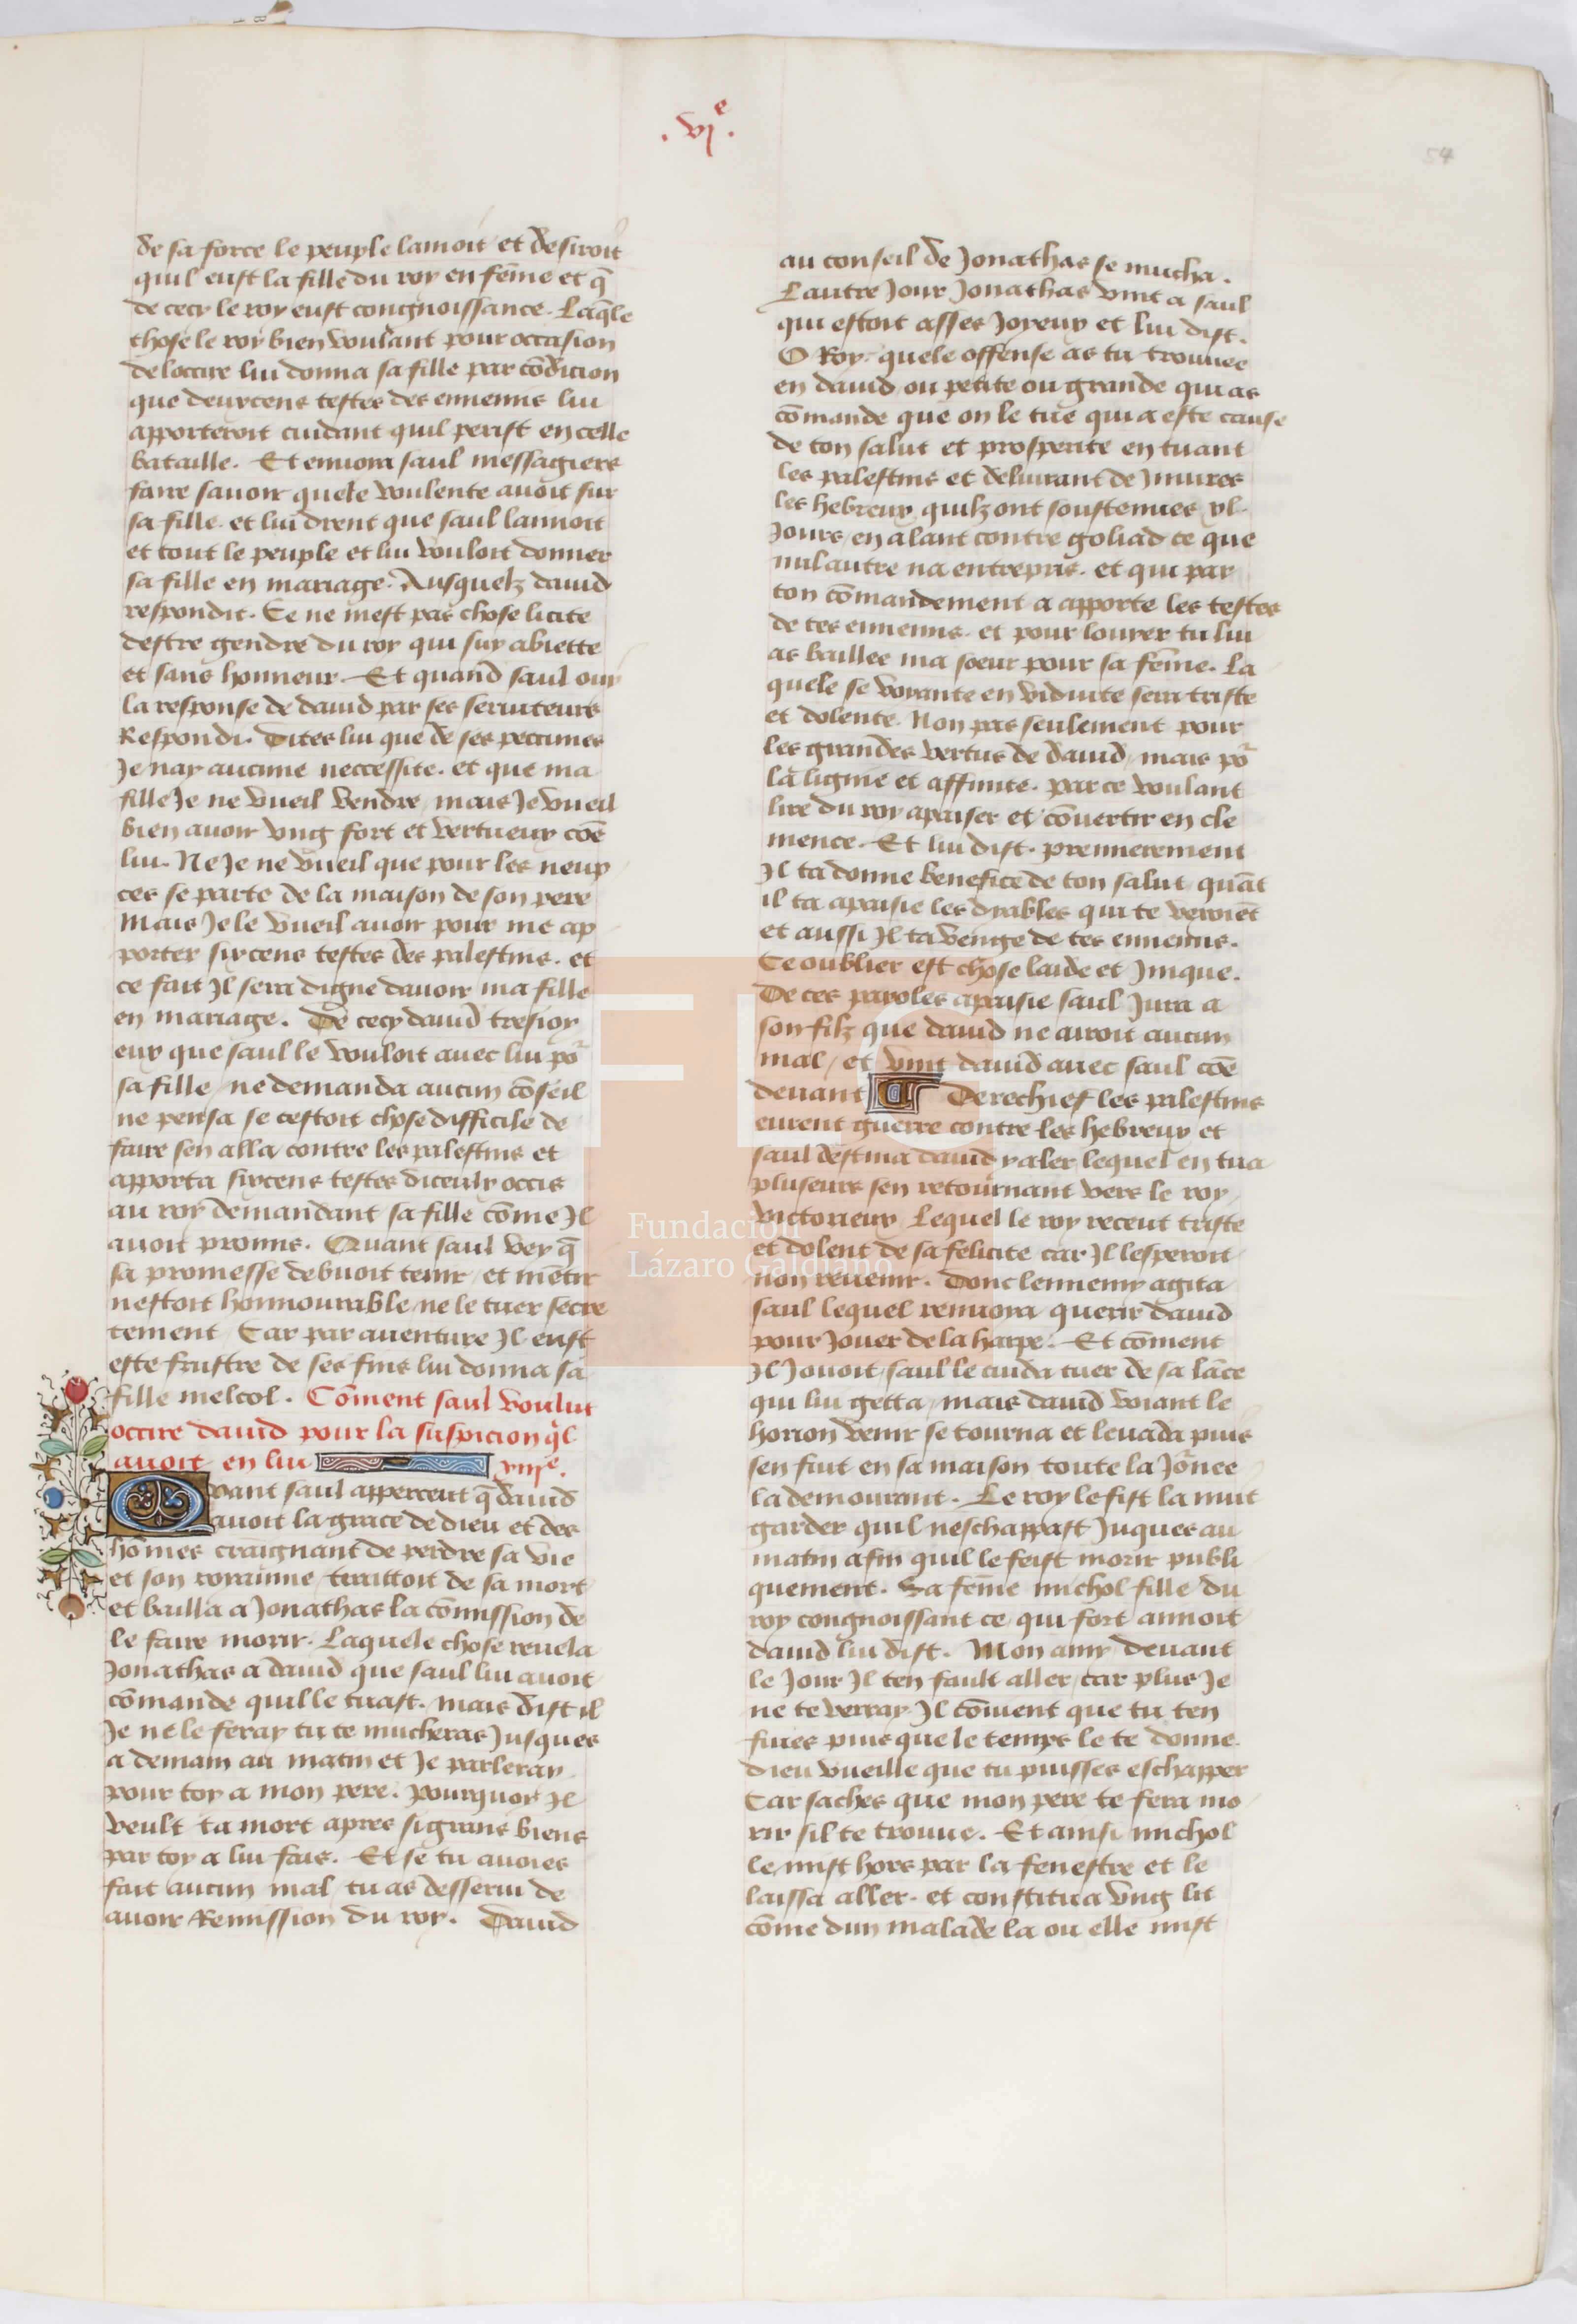 .vjᵉ.
54
de sa force le peuple lamoit et desiroit
quil eust la fille du roy en fēme et q̄
de cecy le roy eust congnoissance. Laq̄le
chose le roy bien voulant pour occasion
de loccire lui donna sa fille par cōdicion
que deuxcens testes des ennemis lui
apporteroit cuidant quil perist en celle
bataille. Et enuoia saul messagiers
faire sauoir quele voulente auoit sur
sa fille. et lui dirent que saul lamoit
et tout le peuple et lui vouloit donner
sa fille en mariage. Ausquelz dauid
respondit. Ce ne mest pas chose licite
destre gendre du roy qui suy abiette
et sans honneur. Et quand saul ouy
la response de dauid par ses seruiteurs
Respondi. Dites lui que de ses pecunes
Je nay aucune neccessite. et que ma
fille Je ne vueil vendre mais Je vueil
bien auoir vng fort et vertueux cōe
lui. Ne Je ne vueil que pour les neup
ces se parte de la maison de son pere
Mais Je le vueil auoir pour me ap
porter sixcens testes des palestins. et
ce fait Jl sera digne dauoir ma fille
en mariage. De cecy dauid tresioy
eux que saul le vouloit auec lui po᷒
sa fille ne demanda aucun cōseil
ne pensa se cestoit chose difficile de
faire sen alla contre les palestins et
apporta sixcens testes diceulx occis
au roy demandant sa fille cōme Jl
auoit promis. Quant saul vey q̄
sa promesse debuoit tenir et mētir
nestoit honnourable ne le tuer secre
tement Car par auenture Jl eust
este frustre de ses fins lui donna sa
fille melcol. Cōment saul voulut
occire dauid pour la suspicion q̄l
auoit en lui xiiijᵉ.
Quant saul apperceut q̄ dauid
auoit la grace de dieu et des
hōmes craignant de perdre sa vie
et son royaume traittoit de sa mort
et bailla a Jonathas la cōmission de
le faire morir. Laquele chose reuela
Jonathas a dauid que saul lui auoit
cōmande quil le tuast. mais dist il
Je ne le feray tu te mucheras Jusques
a demain au matin et Je parleray
pour toy a mon pere. pourquoy Jl
veult ta mort apres si grans biens
par toy a lui fais. Et se tu auoies
fait aucun mal tu as desserui de
auoir Remission du roy. Dauid
au conseil de Jonathas se mucha.
Lautre Jour Jonathas vint a saul
qui estoit asses Joyeux et lui dist.
O Roy. quele offense as tu trouuee
en dauid ou petite ou grande qui as
cōmande que on le tue qui a este cause
de ton salut et prosperite en tuant
les palestins et deliurant de Jniures
les hebreux quilz ont soustenues xl.
Jours en alant contre goliad ce que
nul autre na entrepris. et qui par
ton cōmandement a apporte les testes
de tes ennemis. et pour louyer tu lui
as baillee ma soeur pour sa fēme. La
quele se voyante en viduite sera triste
et dolente. Non pas seulement pour
les grandes vertus de dauid mais po᷒
la lignie et affinite. par ce voulant
lire du roy apaiser et cōuertir en cle
mence. Et lui dist. premierement
Jl ta donne benefice de ton salut quāt
il ta apaisie les dyables qui te veroiēt
et aussi Jl ta venge de tes ennemis.
Ce oublier est chose laide et Jnique.
De ces paroles apaisie saul Jura a
son filz que dauid ne airoit aucun
mal / et vint dauid auec saul cōe
deuant Derechief les palestins
eurent guerre contre les hebreux et
saul destina dauid y aler lequel en tua
pluseurs sen retournant vers le roy
victorieux Lequel le roy receut triste
et dolent de sa felicite car Jl lesperoit
non reuenir. Donc lennemy agita
saul lequel renuoia querir dauid
pour Jouer de la harpe. Et cōment
Jl Jouoit saul le cuida tuer de sa lāce
qui lui getta mais dauid voiant le
horion venir se tourna et leuada puis
sen fuit en sa maison toute la Jo᷒nee
la demourant. Le roy le fist la nuit
garder quil neschappast Juques au
matin afin quil le feist morir publi
quement. Sa fēme michol fille du
roy congnoissant ce qui fort amoit
dauid lui dist. Mon amy deuant
le Jour Jl ten fault aller car plus Je
ne te verray Jl cōuient que tu ten
fuies puis que le temps le te donne.
dieu vueille que tu puisses eschapper
Car saches que mon pere te fera mo
rir sil te trouue. Et ainsi michol
le mist hors par la fenestre et le
laissa aller. et constitua vng lit
cōme dun malade la ou elle mist
Fundación
Lázaro Galdiano